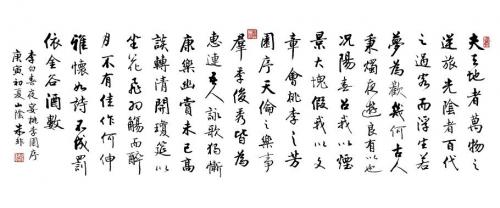 夫天地者萬物之
逆旅光陰者百代
之過客而浮生若
夢為歡幾何古人
秉燭夜遊良有以也
況陽春召我以煙
景大塊假我以文
章會桃李之芳
園序天倫之樂事
羣季俊秀皆為
惠連吾人詠歌獨慚
康樂幽賞未已高
談轉清開瓊筵以
坐花飛羽觴而醉
月不有佳作何伸
雅懷如詩不成罰
依金谷酒數
李白春夜宴桃李園序
庚寅初夏山陰